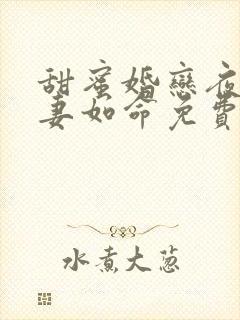 甜蜜婚戀夜
妻如命免費
水煮大蔥